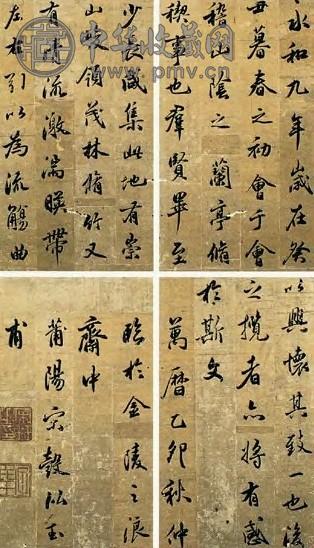 中华博物
www.pmv.cn
永和九年歲在癸
丑暮春之初會于會
稽山陰之蘭亭脩
禊事也羣賢畢至
少長咸集此地有崇
山峻領茂林脩竹又
有清流激湍暎帶
左右引以為流觴曲
以興懷其致一也後
之攬者亦將有感
於斯文
萬曆乙卯秋仲
臨於金陵之浪
齋中
莆陽宋瑴比玉
甫